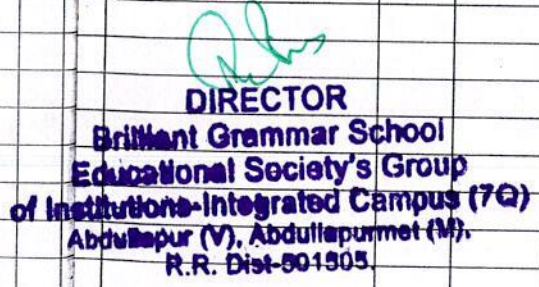 DIRECTOR
Brilliant Grammar School
Educational Society's Group
of Institutions-Integrated Campus (7Q)
Abdullapur (V), Abdullapurmet (M),
R.R. Dist-501505.